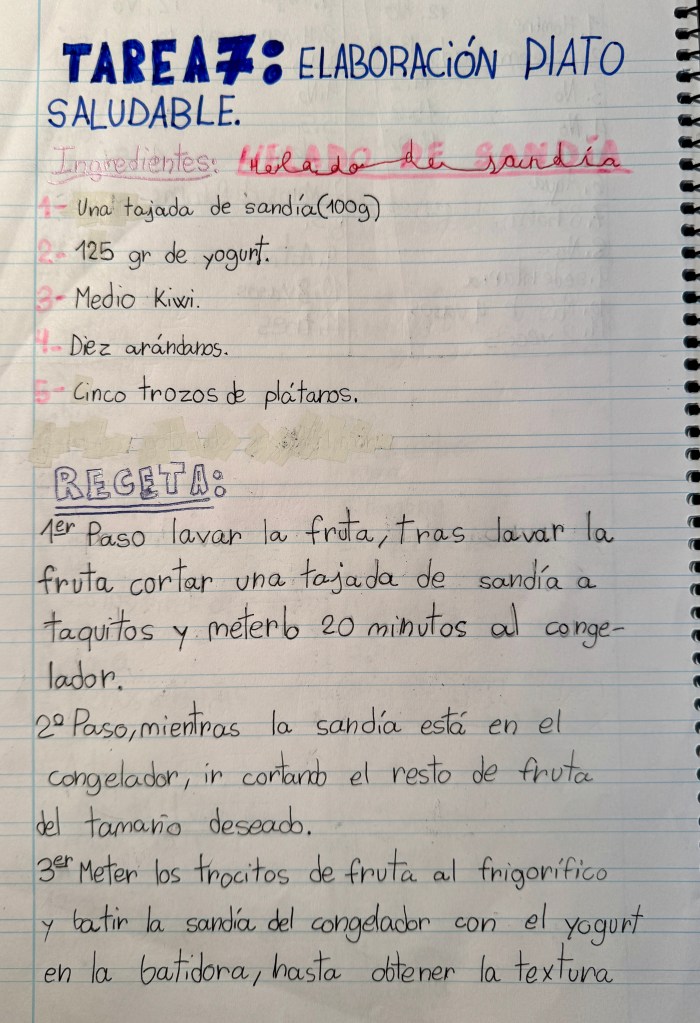 TAREA 7: ELABORACIÓN PLATO
SALUDABLE.
Ingredientes: Helado de sandía
1- Una tajada de sandía (100g)
2- 125 gr de yogurt.
3- Medio Kiwi.
4- Diez arándanos.
5- Cinco trozos de plátanos.
RECETA:
1er Paso lavar la fruta, tras lavar la
fruta cortar una tajada de sandía a
taquitos y meterlo 20 minutos al conge-
lador.
2º Paso, mientras la sandía está en el
congelador, ir cortando el resto de fruta
del tamaño deseado.
3er Meter los trocitos de fruta al frigorífico
y batir la sandía del congelador con el yogurt
en la batidora, hasta obtener la textura